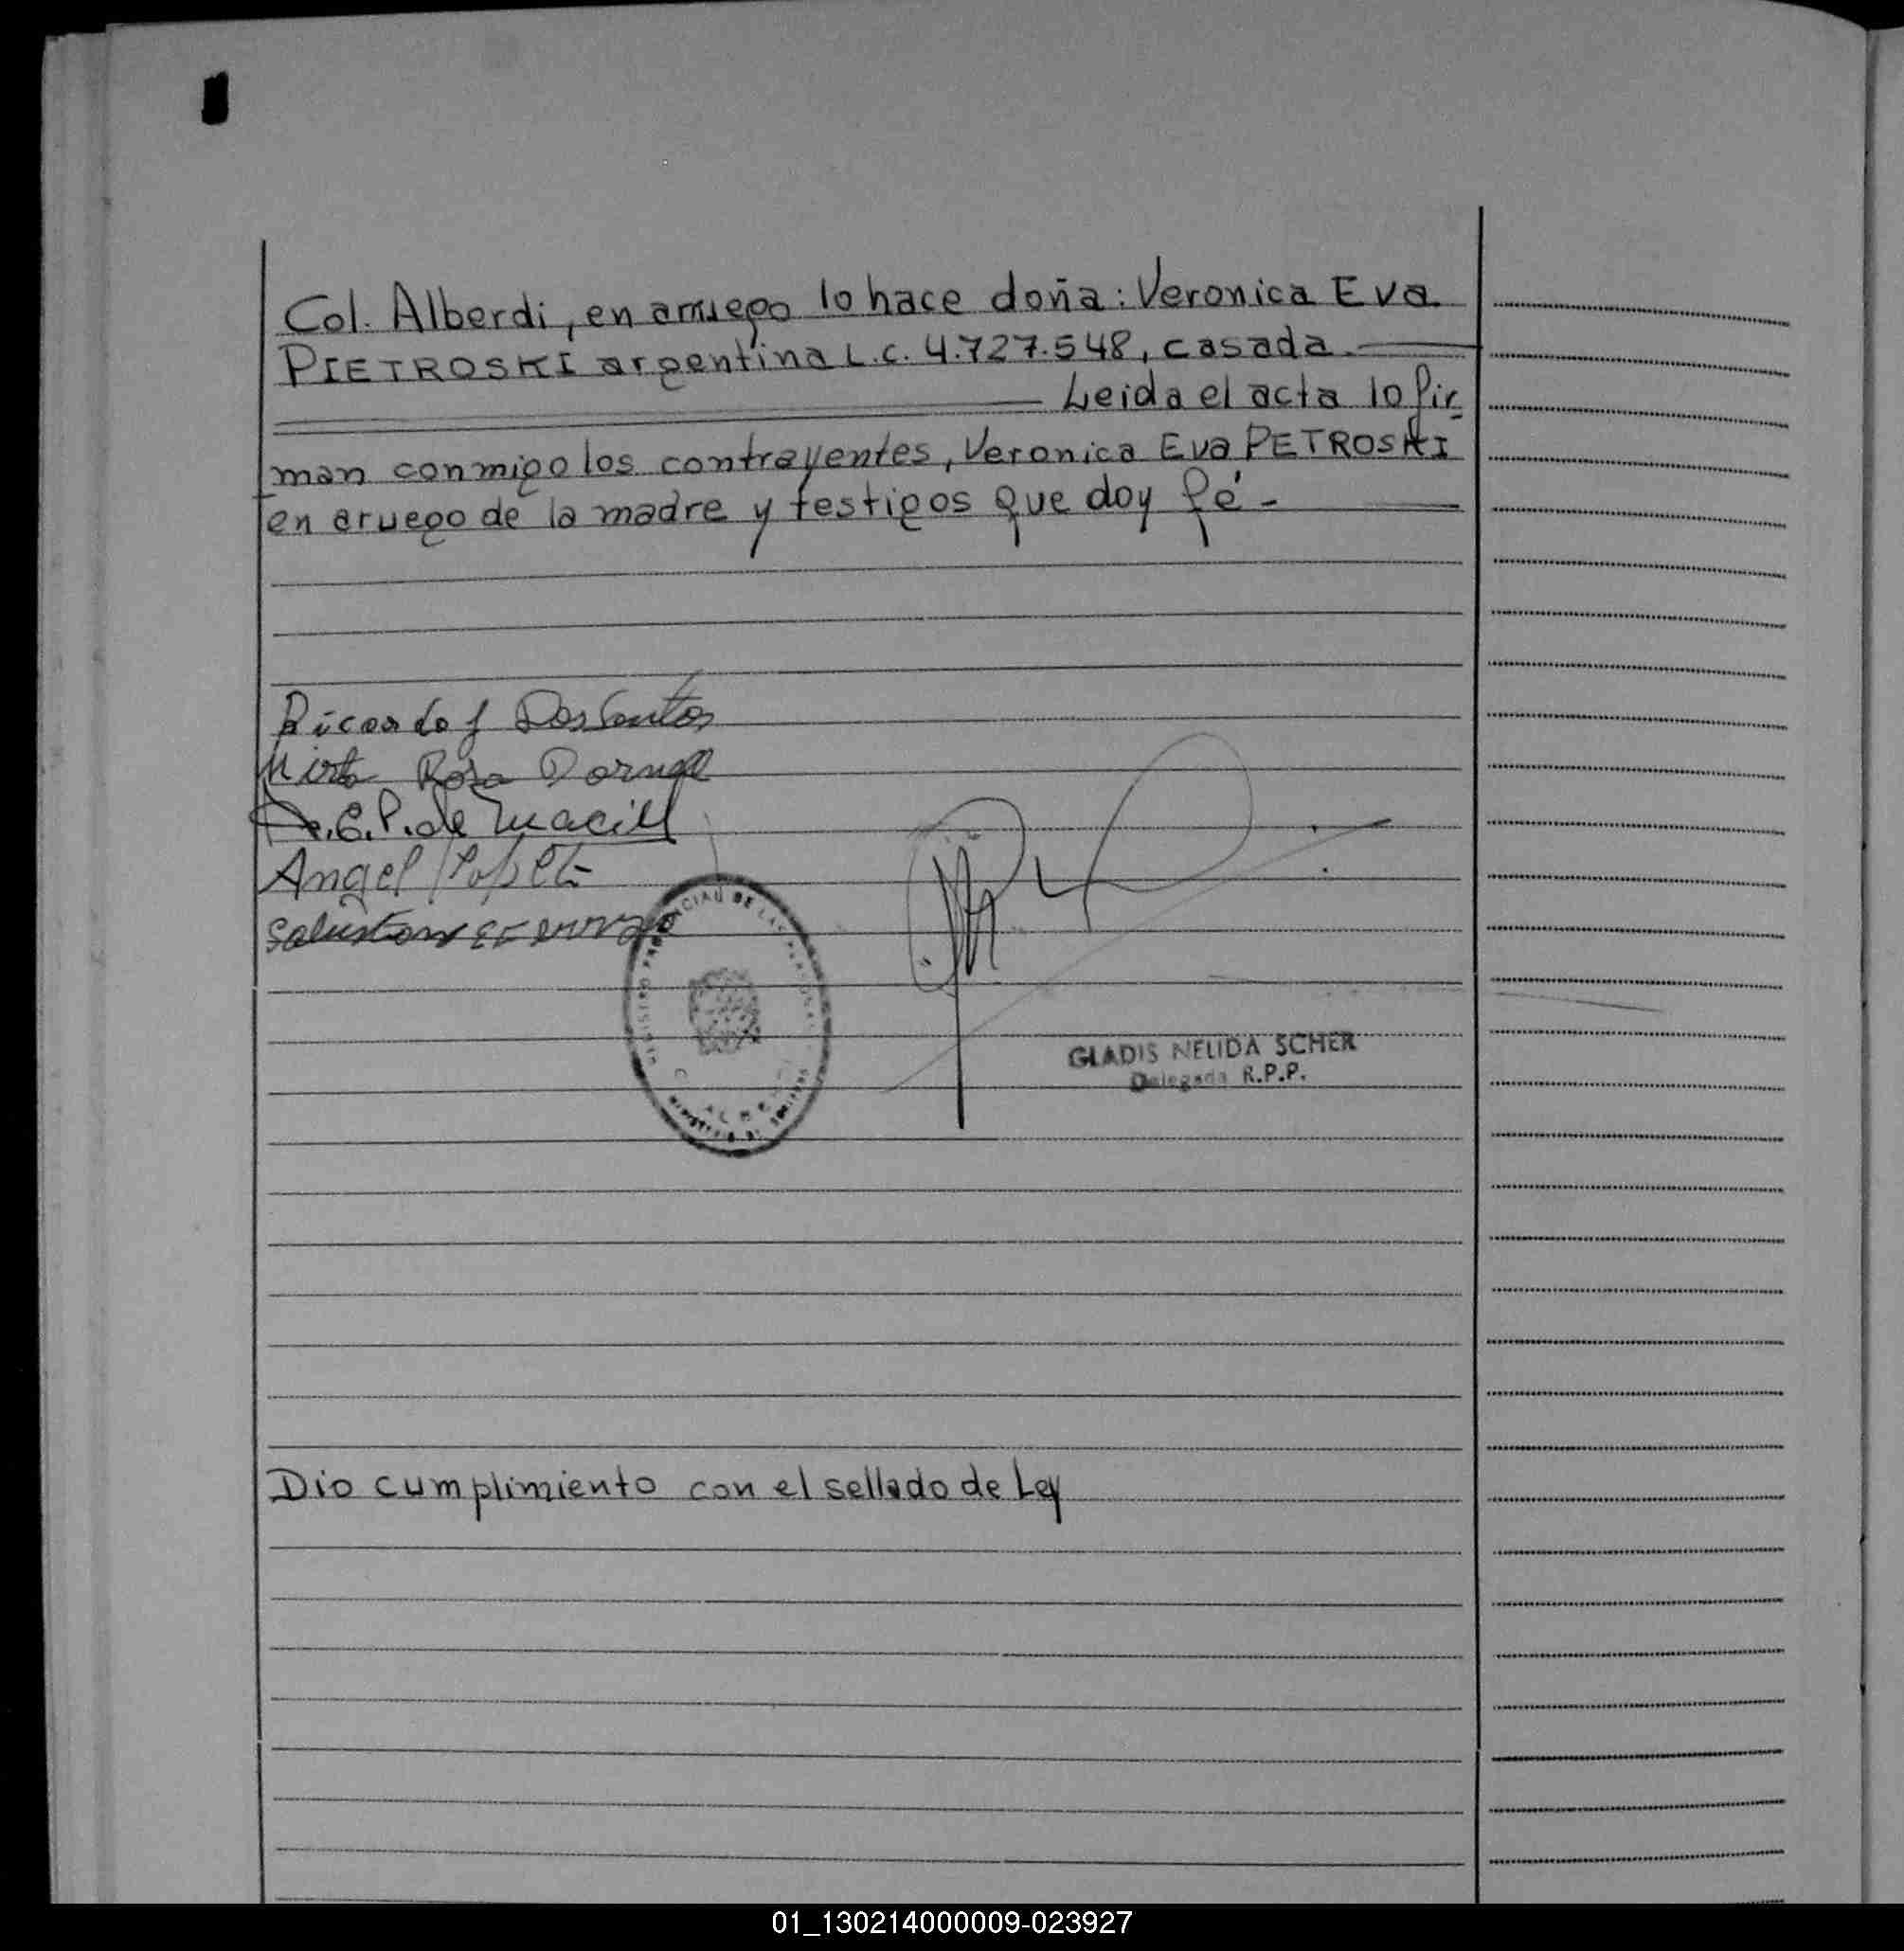 Col. Alberdi, en arruego lo hace doña: Veronica Eva
PIETROSKI argentina L.C. 4.727.548, casada.
Leida el acta lo fir
man conmigo los contrayentes, Veronica Eva PETROSKI
en aruego de la madre y testigos que doy fé-
Ricardo J Dos Santos
Mirta Rosa Dornel
E. P. de Maciel
Angel
DE
GLADIS NELIDA SCHER
Delegada R.P.P.
Dio cumplimiento con el sellado de Ley
01_130214000009-023927